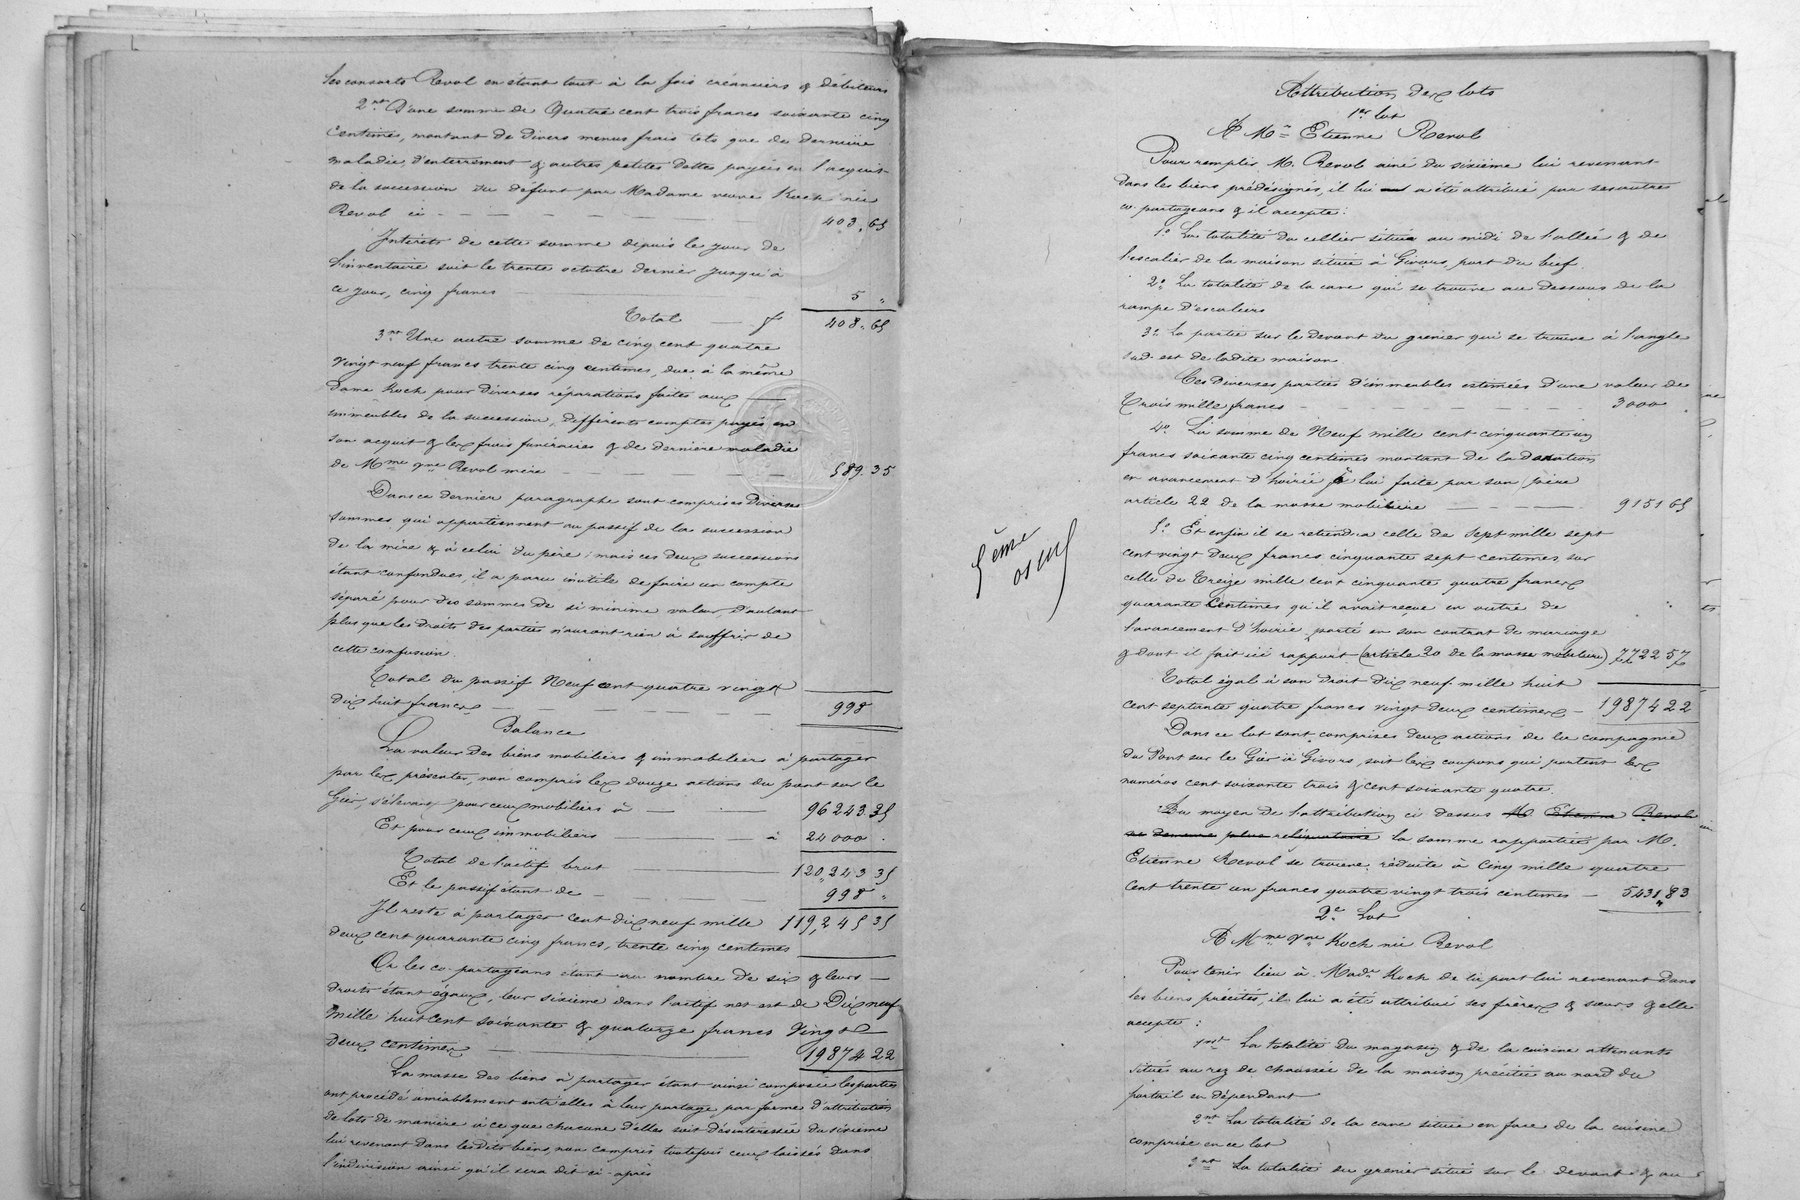 Les consorts Revol en étant tout à la fois créanciers & débiteurs
2.nt D'une somme de Quatre cent trois francs soixante cinq
Centimes, montant de divers menus frais tels que de dernière
maladie, d'enterrement & autres petites dettes payées en l'acquit
de la succession du défunt par Madame veuve Koch née
Revol ci - 403.65
Intérêts de cette somme depuis le jour de
l'inventaire soit le trente octobre dernier jusqu'à
ce jour, cinq francs 5 "
Total — f 408.65
3.nt Une autre somme de cinq cent quatre
vingt neuf francs trente cinq centimes, due à la même
Dame Koch pour diverses réparations faites aux
immeubles de la succession, différents comptes payés en
son acquit & les frais funéraires & de dernière maladie
de Mme vve Revol mère 589.35
Dans ce dernier paragraphe sont comprises Diverses
sommes qui appartiennent au passif de la succession
de la mère & à celui du père ; mais ces deux successions
étant confondues, il a paru inutile de faire un compte
séparé pour des sommes de si minime valeur, d'autant
plus que les droits des parties n'auront rien à souffrir de
cette confusion.
Total du passif Neuf cent quatre vingt
dix huit francs 998
Balance
La valeur des biens mobiliers & immobiliers à partager
par les présentes, non compris les douze actions du pont sur le
Gier, s'élevant pour ceux mobiliers à 96243.35
Et pour ceux immobiliers à 24000.
Total de l'actif brut 120,243 35
Et le passif étant de 998 "
Il reste à partager cent dix neuf mille 119,245 35
deux cent quarante cinq francs, trente cinq centimes
Or les co-partageans étant au nombre de six & leurs
droits étant égaux, leur sixième dans l'actif net est de Dix neuf
mille huit cent soixante & quatorze francs Vingt
deux centimes 19874 22
La masse des biens à partager étant ainsi composée les parties
ont procédé amiablement entr'elles à leur partage par forme d'attribution
de lots de manière à ce que chacune d'elles soit désintéressée du sixième
lui revenant dans lesdits biens, non compris toutefois ceux laissés dans
l'indivision ainsi qu'il sera dit ci-après
Attribution des lots
1er lot
A Mr Etienne Revol
Pour remplir M. Revol ainé du sixième lui revenant
dans les biens prédésignés, il lui a été attribué par ses autres
co-partageans & il accepte :
1° La totalité du cellier situé au midi de l'allée & de
l'escalier de la maison située à Givors, port du bief.
2° La totalité de la cave qui se trouve au dessous de la
rampe d'escaliers
3° La partie sur le devant du grenier qui se trouve à l'angle
sud-est de ladite maison
Ces diverses parties d'immeubles estimées d'une valeur de
Trois mille francs 3000
4° La somme de Neuf mille cent cinquante un
francs soixante cinq centimes montant de la donation
en avancement d'hoirie à lui faite par son père
article 22 de la masse mobilière 9151 65
5° Et enfin il se retiendra celle de Sept mille sept
cent vingt deux francs cinquante sept centimes, sur
celle de Treize mille cent cinquante quatre francs
quarante Centimes qu'il avait reçue en outre de
l'avancement d'hoirie porté en son contrat de mariage
& dont il fait ici rapport (article 20 de la masse mobilière) 7722 57
Total égal à son droit dix neuf mille huit
cent septante quatre francs vingt deux centimes 19874 22
Dans ce lot sont comprises deux actions de la compagnie
du Pont sur le Gier à Givors, soit les coupons qui portent les
numéros cent soixante trois & cent soixante quatre.
Au moyen de l'attribution ci dessus M Etienne Revol
ne demeure plus reliquataire la somme rapportée par M.
Etienne Revol se trouve réduite à Cinq mille quatre
cent trente un francs quatre vingt trois centimes — 5431,83
2e Lot
A Mme vve Koch née Revol
Pour tenir lieu à Made Koch de la part lui revenant dans
les biens précités, il lui a été attribué ses frères & sœurs & elle
accepte :
1ent La totalité du magasin & de la cuisine attenante
situés au rez de chaussée de la maison précitée au nord du
portail en dépendant
2nt La totalité de la cave située en face de la cuisine
comprise en ce lot
3nt La totalité du grenier situé sur le devant & au
5ème